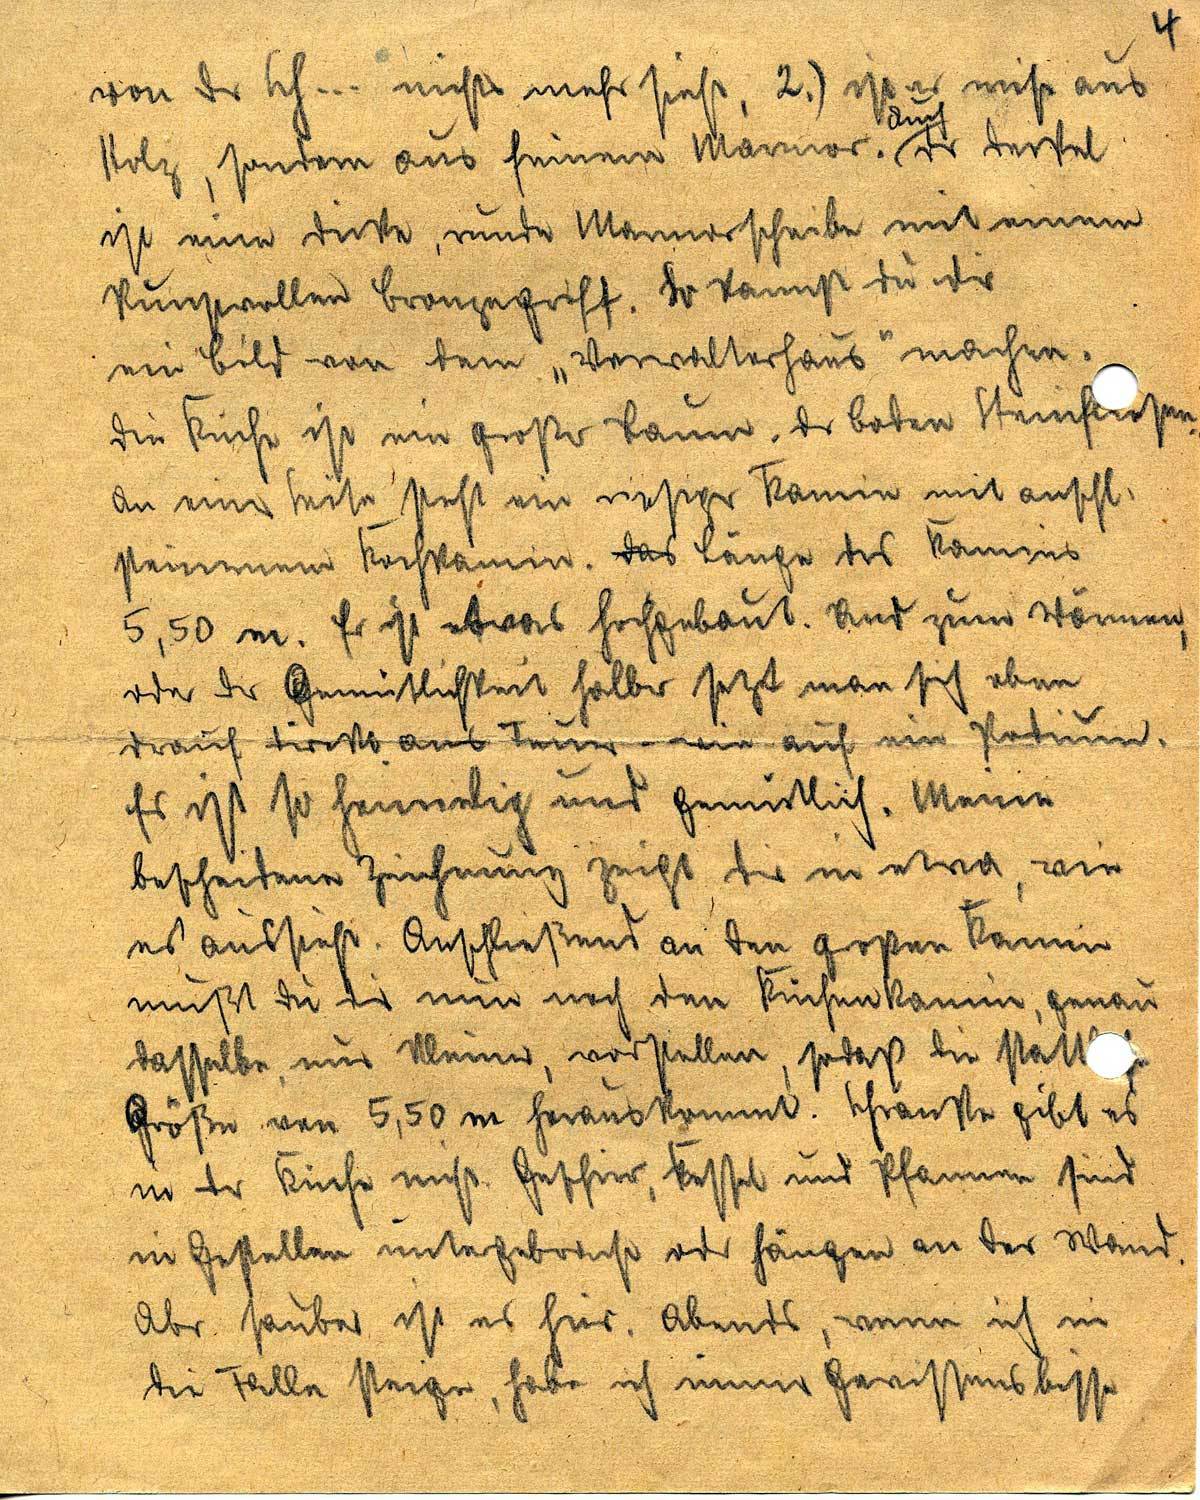 4
von der Sch... nichts mehr sieht, 2.) ist er nicht aus
Holz, sondern aus feinem Marmor. Auch der Deckel
ist eine dicke, runde Marmorscheibe mit einem
kunstvollen Bronzegriff. So kannst du dir
ein Bild von dem „Verwalterhaus" machen.
Die Küche ist ein großer Raum. Der Boden Steinfliesen.
An einer Seite steht ein riesiger Kamin mit anschl.
steinernem Kochkamin. Das Länge des Kamins
5,50 m. Er ist etwas hochgebaut. Und zum Wärmen,
oder der Gemütlichkeit halber setzt man sich oben
drauf direkt ans Feuer - wie auf ein Podium.
Es ist so heimelig und gemütlich. Meine
bescheidene Zeichnung zeigt dir in etwa, wie
es aussieht. Anschließend an den großen Kamin
mußt du dir nun noch den Küchenkamin, genau
dasselbe, nur kleiner, vorstellen, sodaß die stattliche
Größe von 5,50 m herauskommt. Schränke gibt es
in der Küche nicht. Geschirr, Kessel und Pfannen sind
in Gestellen untergebracht oder hängen an der Wand.
Aber sauber ist es hier. Abends, wenn ich in
die Falle steige, habe ich immer Gewissensbisse